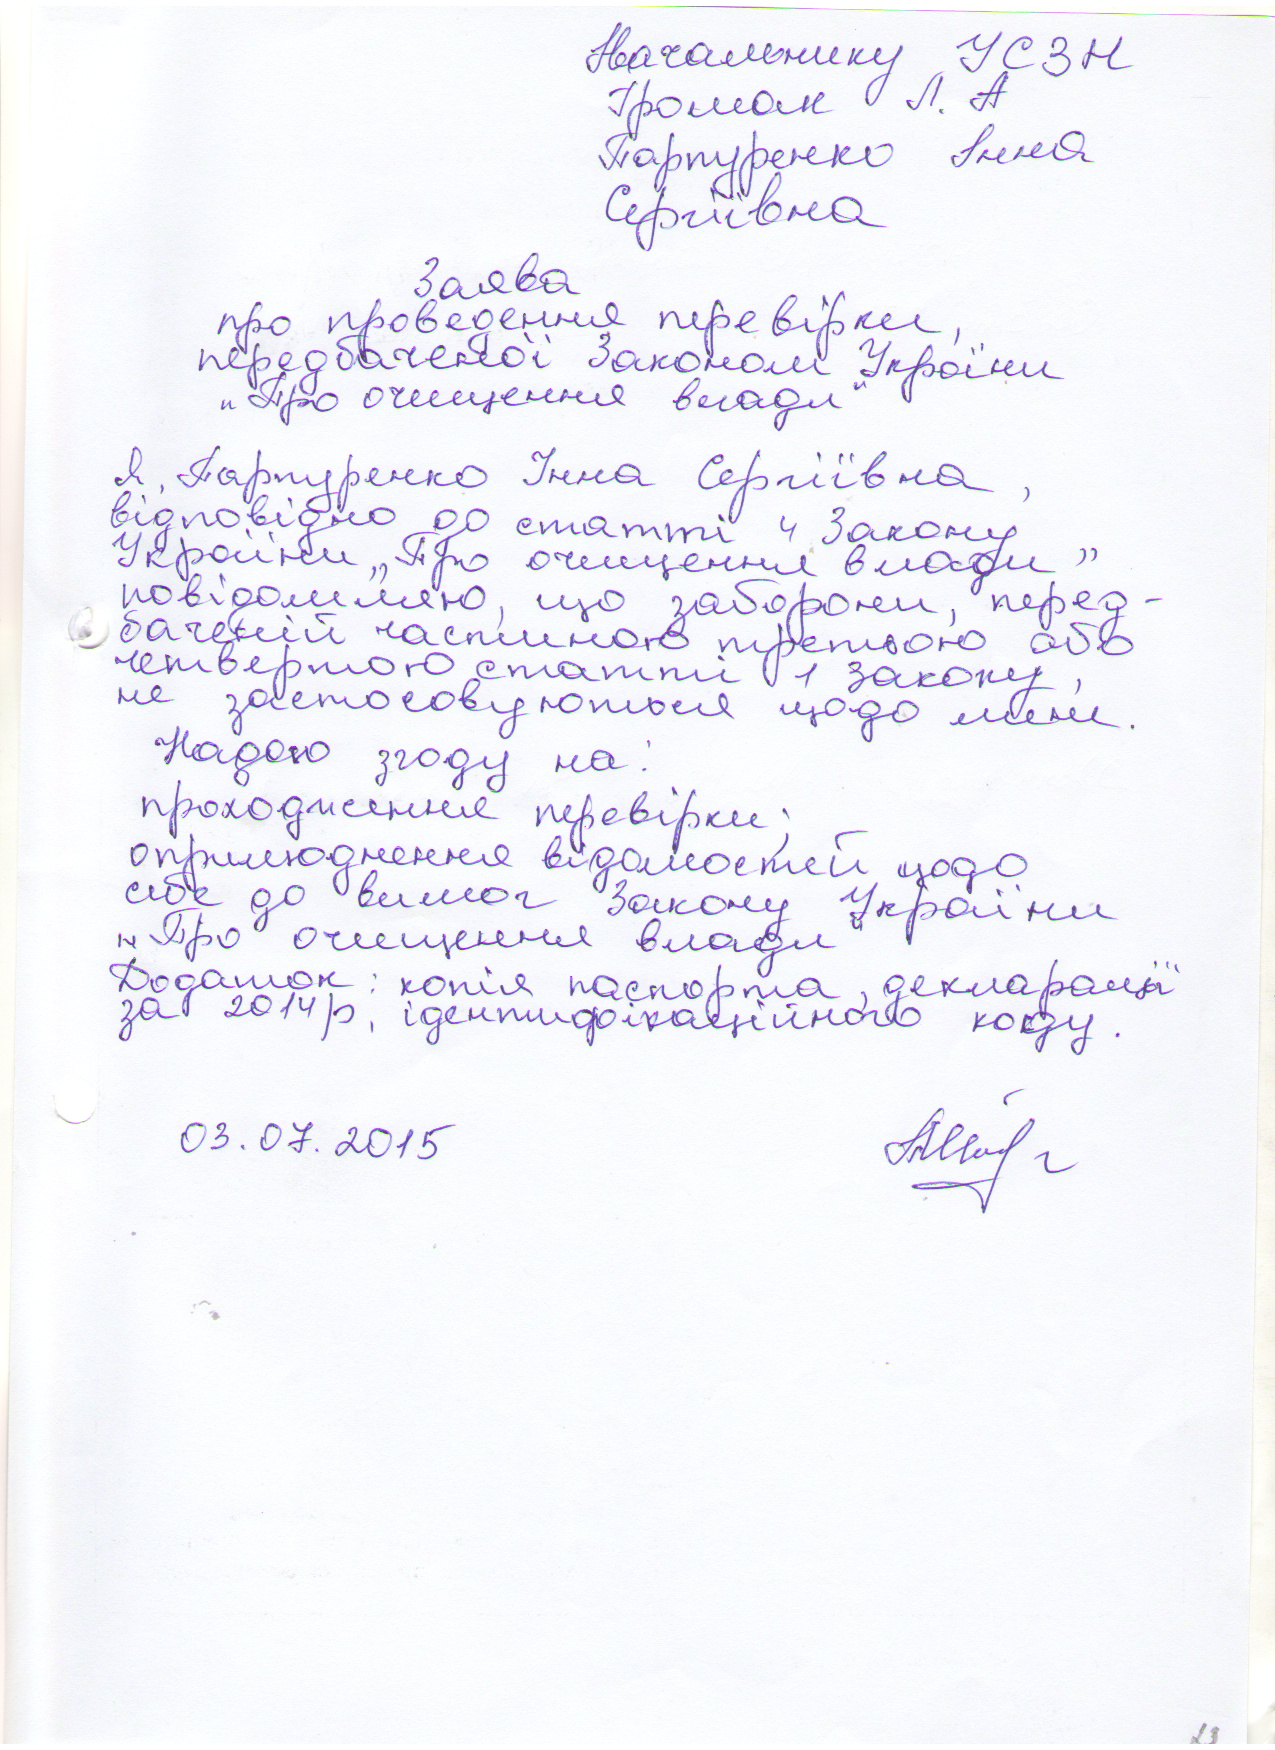 Начальнику УСЗН
Громак Л. А
Парпуренко Інна
Сергіївна
Заява
про проведення перевірки,
передбаченої Законом України
„Про очищення влади"
Я, Парпуренко Інна Сергіївна,
відповідно до статті 4 Закону
України „Про очищення влади"
повідомляю, що заборони, перед-
баченій частиною третьою або
четвертою статті 1 Закону,
не застосовуються щодо мене.
Надаю згоду на:
проходження перевірки;
оприлюднення відомостей щодо
себе до вимог Закону України
„Про очищення влади"
Додаток: копія паспорта, декларації
за 2014р, ідентифікаційного коду.
03.07.2015